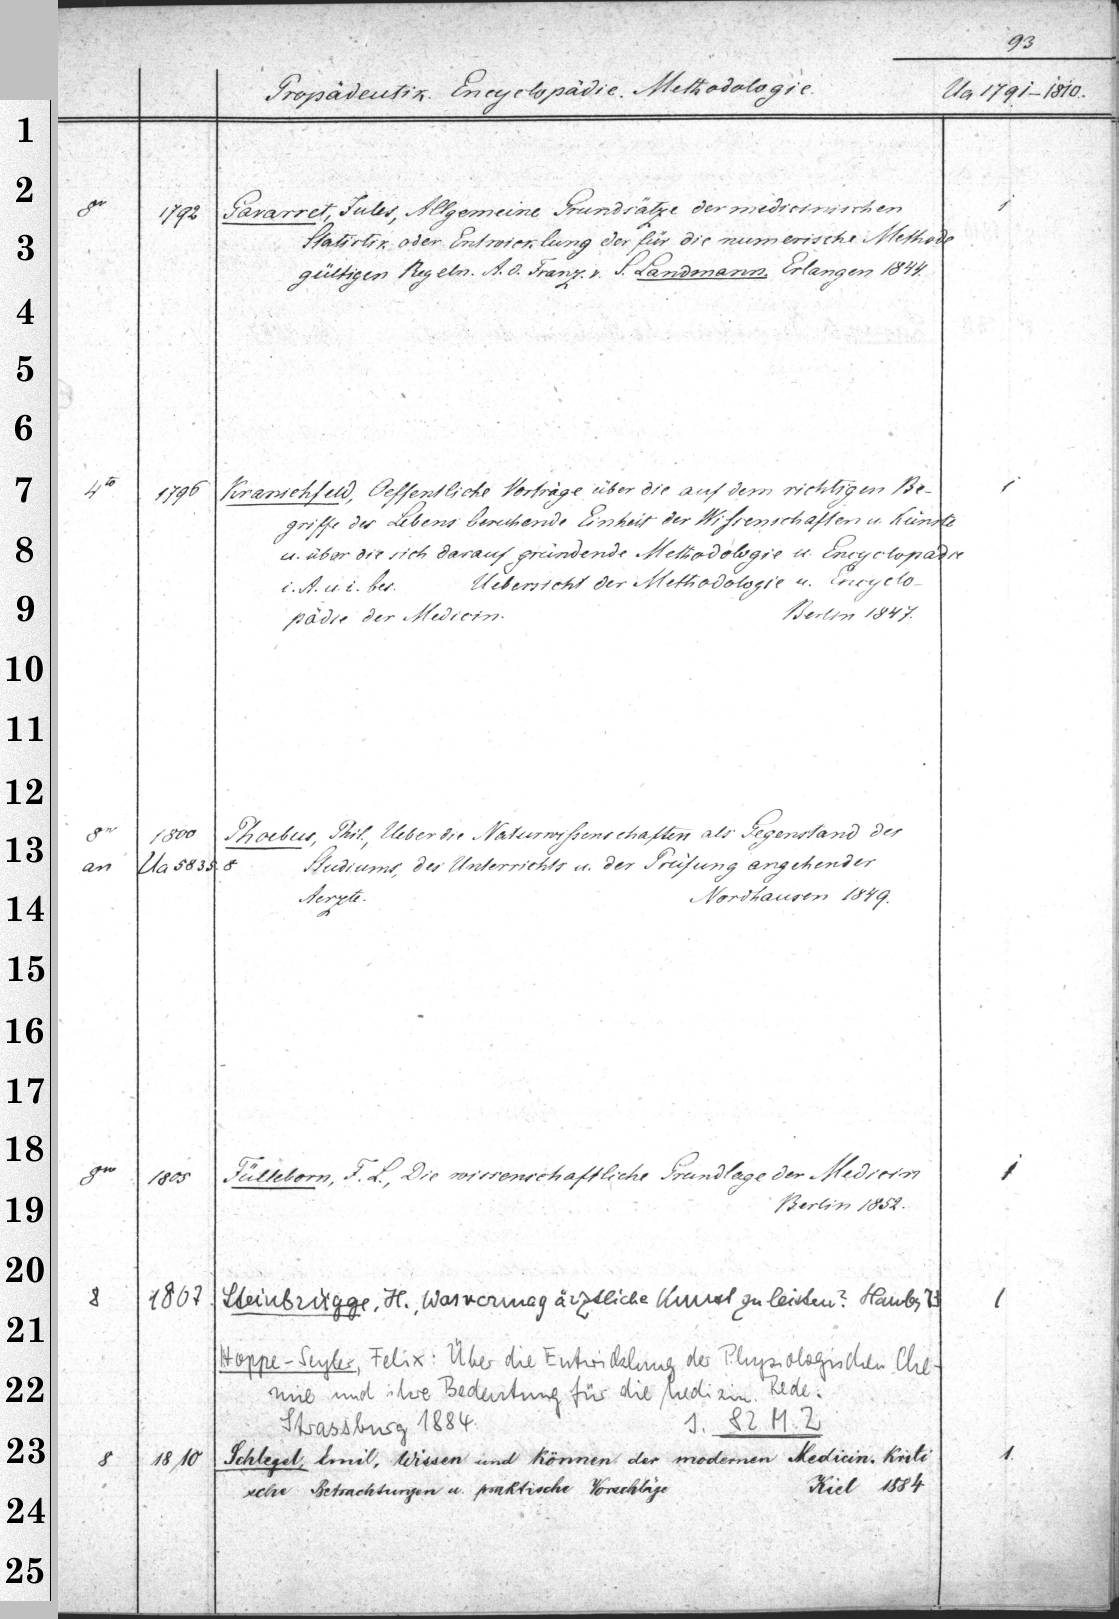 93
Propädeutik. Encyclopädie. Methodologie. Ua 1791–1810.
1
2
8° 1792 Gavarret, Jules, Allgemeine Grundsätze der medicinischen 1
3 Statistik oder Entwicklung der für die numerische Methode
gültigen Regeln. A. d. Franz. v. S. Landmann. Erlangen 1844.
4
5
6
7 4to 1796 Kranichfeld, Oeffentliche Vorträge über die auf dem richtigen Be- 1
griffe des Lebens beruhende Einheit der Wissenschaften u. Künste
8 u. über die sich darauf gründende Methodologie u. Encyclopädie
i. A. u. i. bes. Uebersicht der Methodologie u. Encyclo-
9 pädie der Medicin. Berlin 1847.
10
11
12
8° 1800 Phoebus, Phil., Ueber die Naturwissenschaften als Gegenstand des
13 an Ua 5835.8 Studiums, des Unterrichts u. der Prüfung angehender
14 Aerzte. Nordhausen 1849.
15
16
17
18
8° 1805 Fülleborn, F. L., Die wissenschaftliche Grundlage der Medicin 1
19 Berlin 1852.
20
8 1807 Steinbrügge, H., Was vermag ärztliche Kunst zu leisten? Hambg 73 1
21
Hoppe-Seyler, Felix: Über die Entwicklung der Physiologischen Che-
22 mie und ihre Bedeutung für die Medizin. Rede.
Strassburg 1884. s. 82 M. Z
23 8 1810 Schlegel, Emil, Wissen und Können der modernen Medicin. Kriti 1.
sche Betrachtungen u. praktische Vorschläge Kiel 1884
24
25